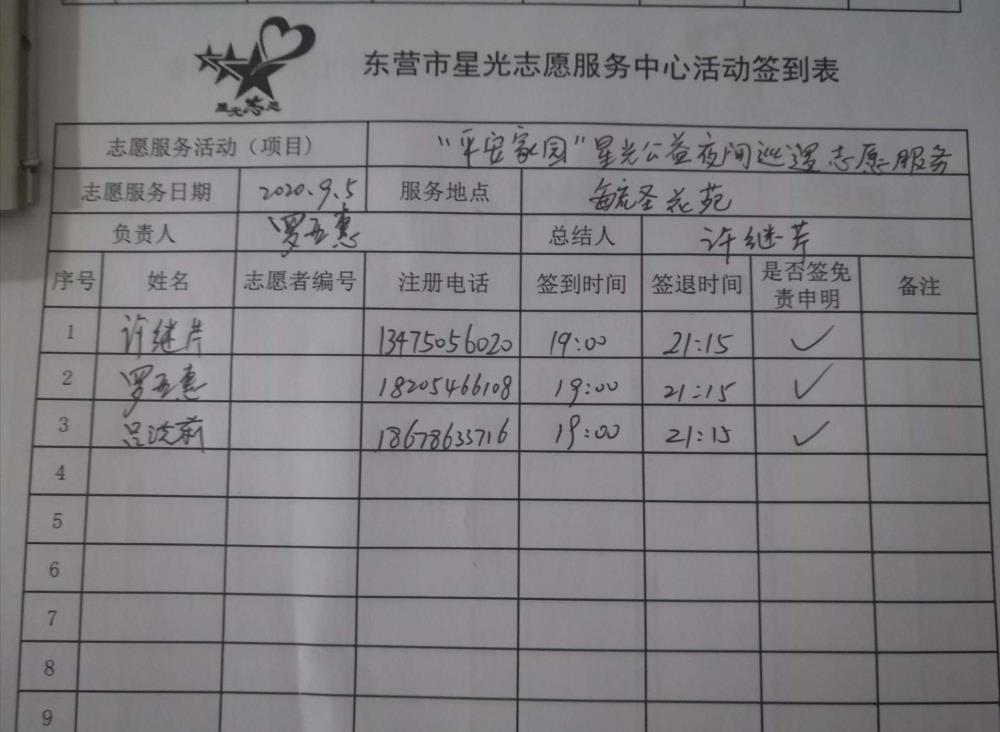 星光志愿
东营市星光志愿服务中心活动签到表
志愿服务活动（项目） "平安家园"星光公益夜间巡逻志愿服务
志愿服务日期 2020.9.5 服务地点 毓圣花苑
负责人 罗亚惠 总结人 许继芹
序号 姓名 志愿者编号 注册电话 签到时间 签退时间 是否签免责申明 备注
1 许继芹 13475056020 19:00 21:15 ✓
2 罗亚惠 18205466108 19:00 21:15 ✓
3 吕 18678633716 19:00 21:15 ✓
4
5
6
7
8
9